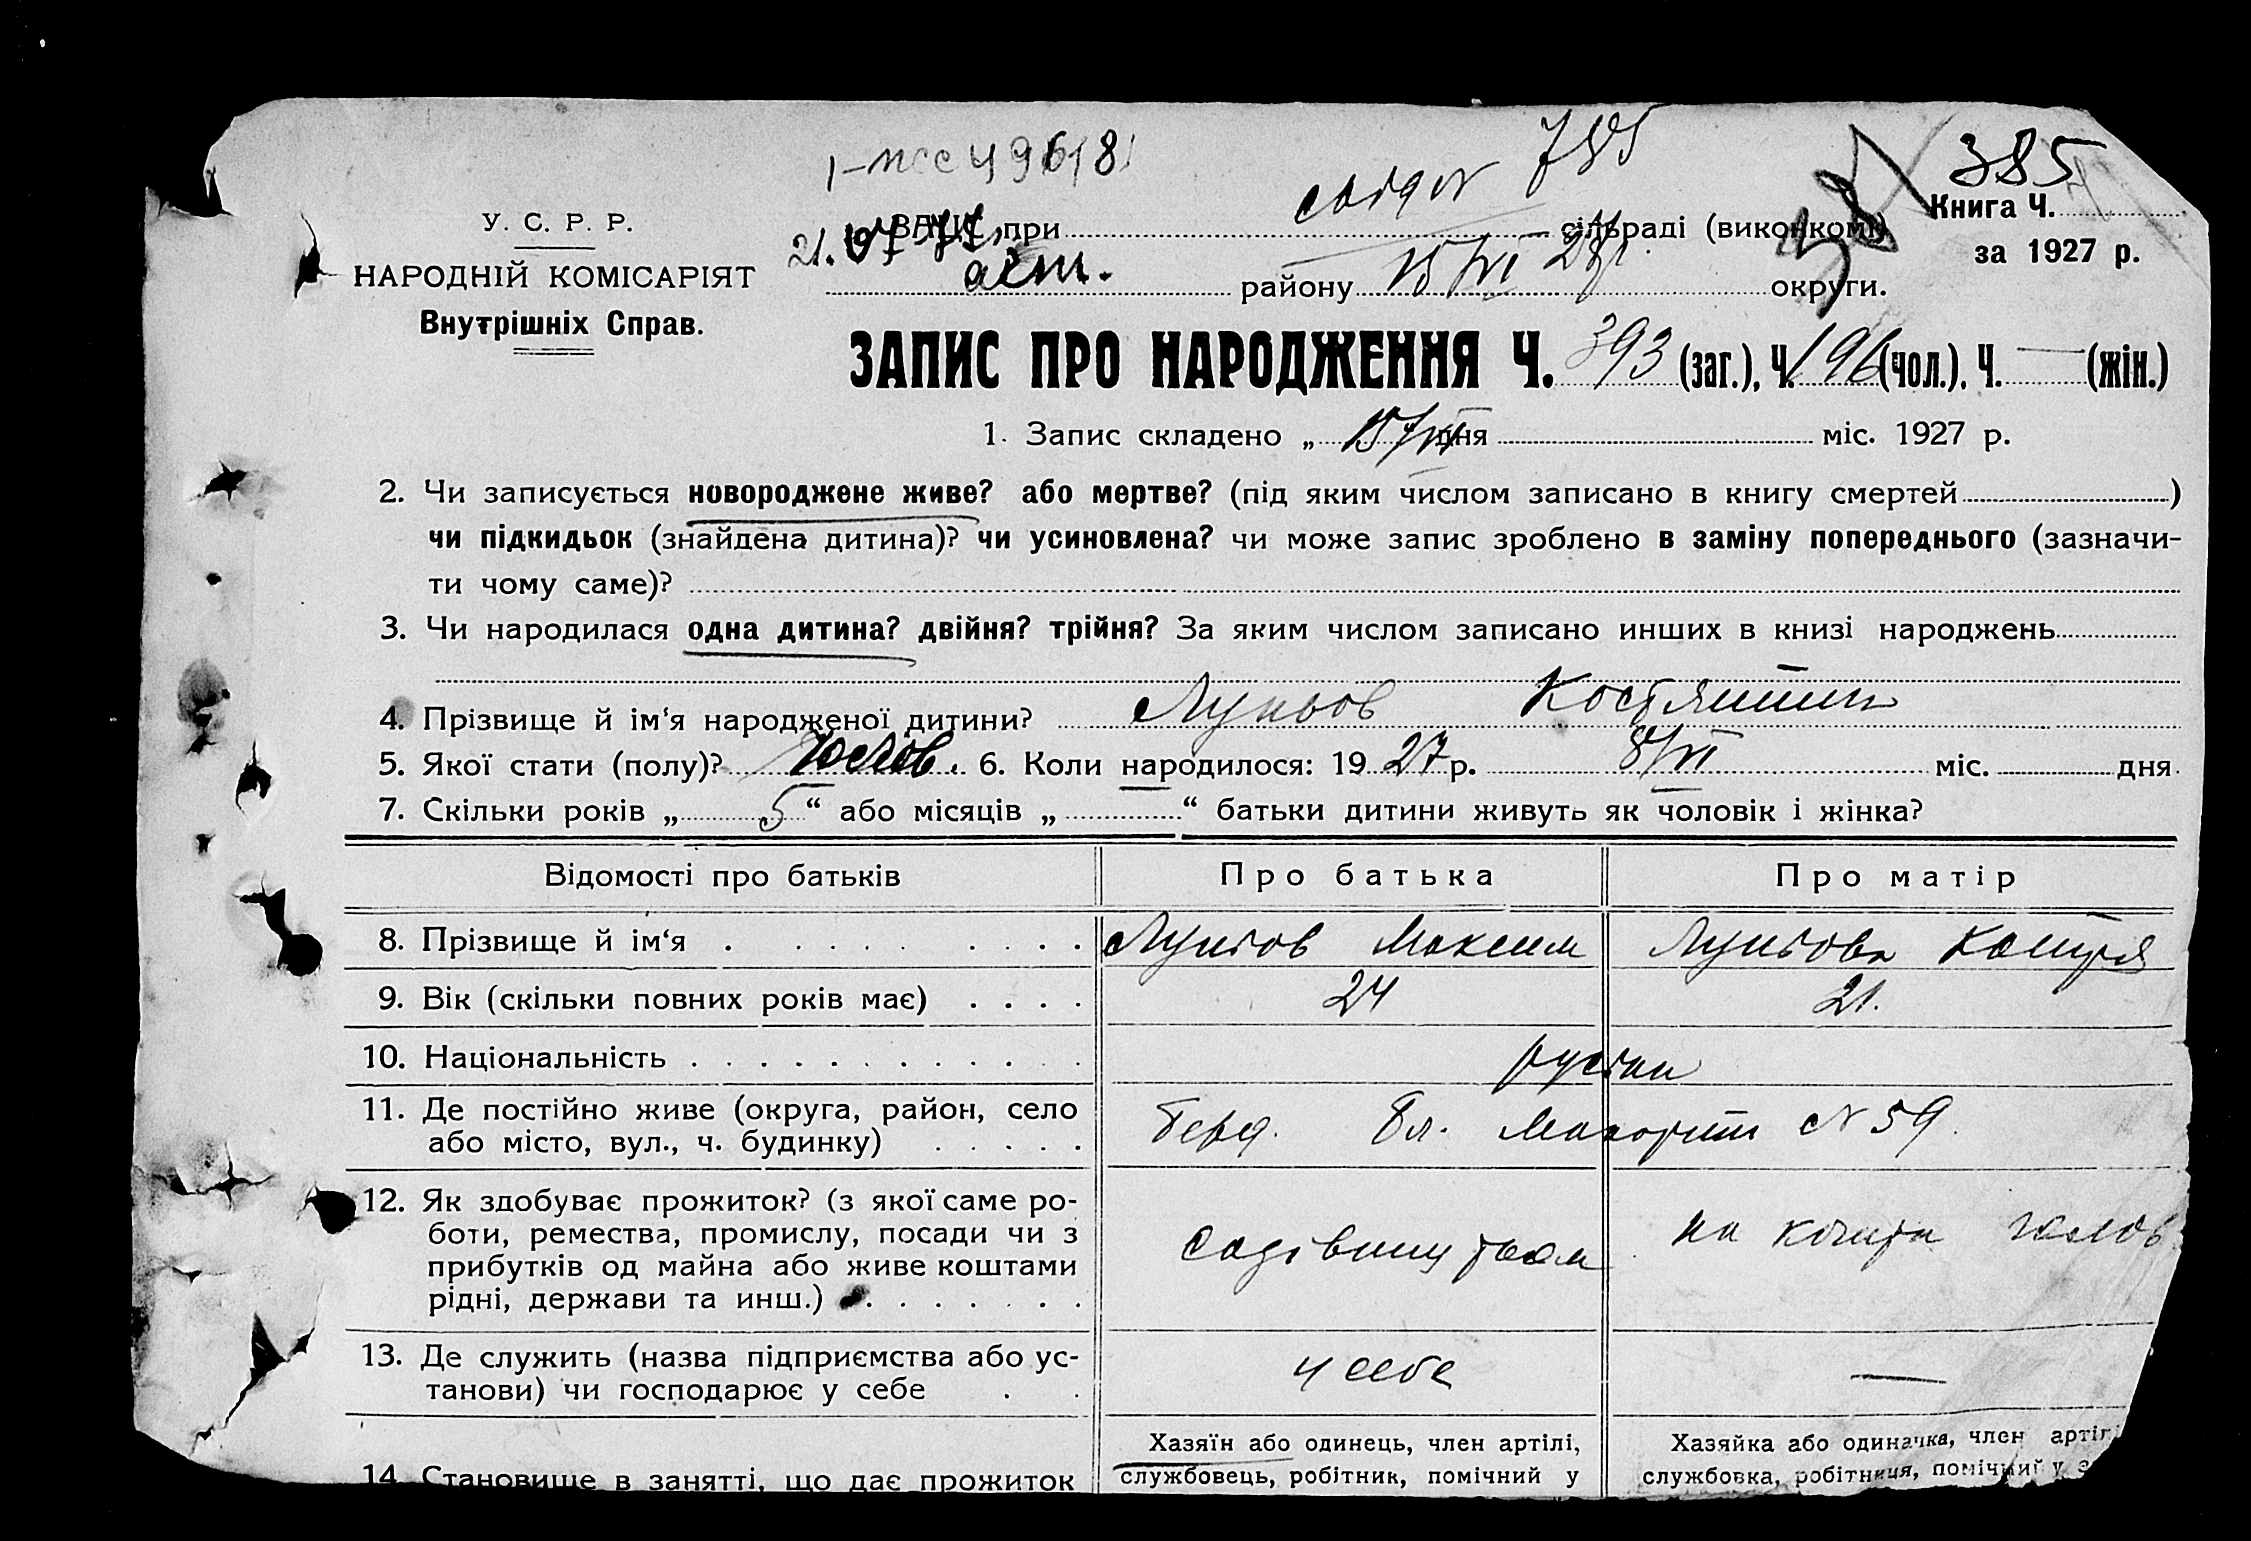 385
У. С. Р. Р.
при сільраді (виконкомі)
Книга Ч.
за 1927 р.
НАРОДНІЙ КОМІСАРІЯТ
Внутрішніх Справ.
району 15/VI 28 р. округи.
ЗАПИС ПРО НАРОДЖЕННЯ Ч. 393 (заг.), Ч. 196 (чол.), Ч. — (жін.)
1. Запис складено „ дня міс. 1927 р.
2. Чи записується новороджене живе? або мертве? (під яким числом записано в книгу смертей )
чи підкидьок (знайдена дитина)? чи усиновлена? чи може запис зроблено в заміну попереднього (зазначи-
ти чому саме)?
3. Чи народилася одна дитина? двійня? трійня? За яким числом записано инших в книзі народжень
4. Прізвище й ім‘я народженої дитини? Луньов Костянтин
5. Якої стати (полу)? чолов. 6. Коли народилося: 1927 р. 8/VI міс. дня
7. Скільки років „ 5 “ або місяців „ “ батьки дитини живуть як чоловік і жінка?
Відомості про батьків Про батька Про матір
8. Прізвище й ім‘я Луньов Максим Луньова Катря
9. Вік (скільки повних років має) 24 21.
10. Національність
11. Де постійно живе (округа, район, село
або місто, вул., ч. будинку) Берд. № 59.
12. Як здобуває прожиток? (з якої саме ро-
боти, ремества, промислу, посади чи з
прибутків од майна або живе коштами
рідні, держави та инш.) садівництвом на кошти чолов
13. Де служить (назва підприємства або ус-
танови) чи господарює у себе у себе —
14. Становище в занятті, що дає прожиток
Хазяїн або одинець, член артілі,
службовець, робітник, помічний у
Хазяйка або одиначка, член артіл
службовка, робітниця, помічний у